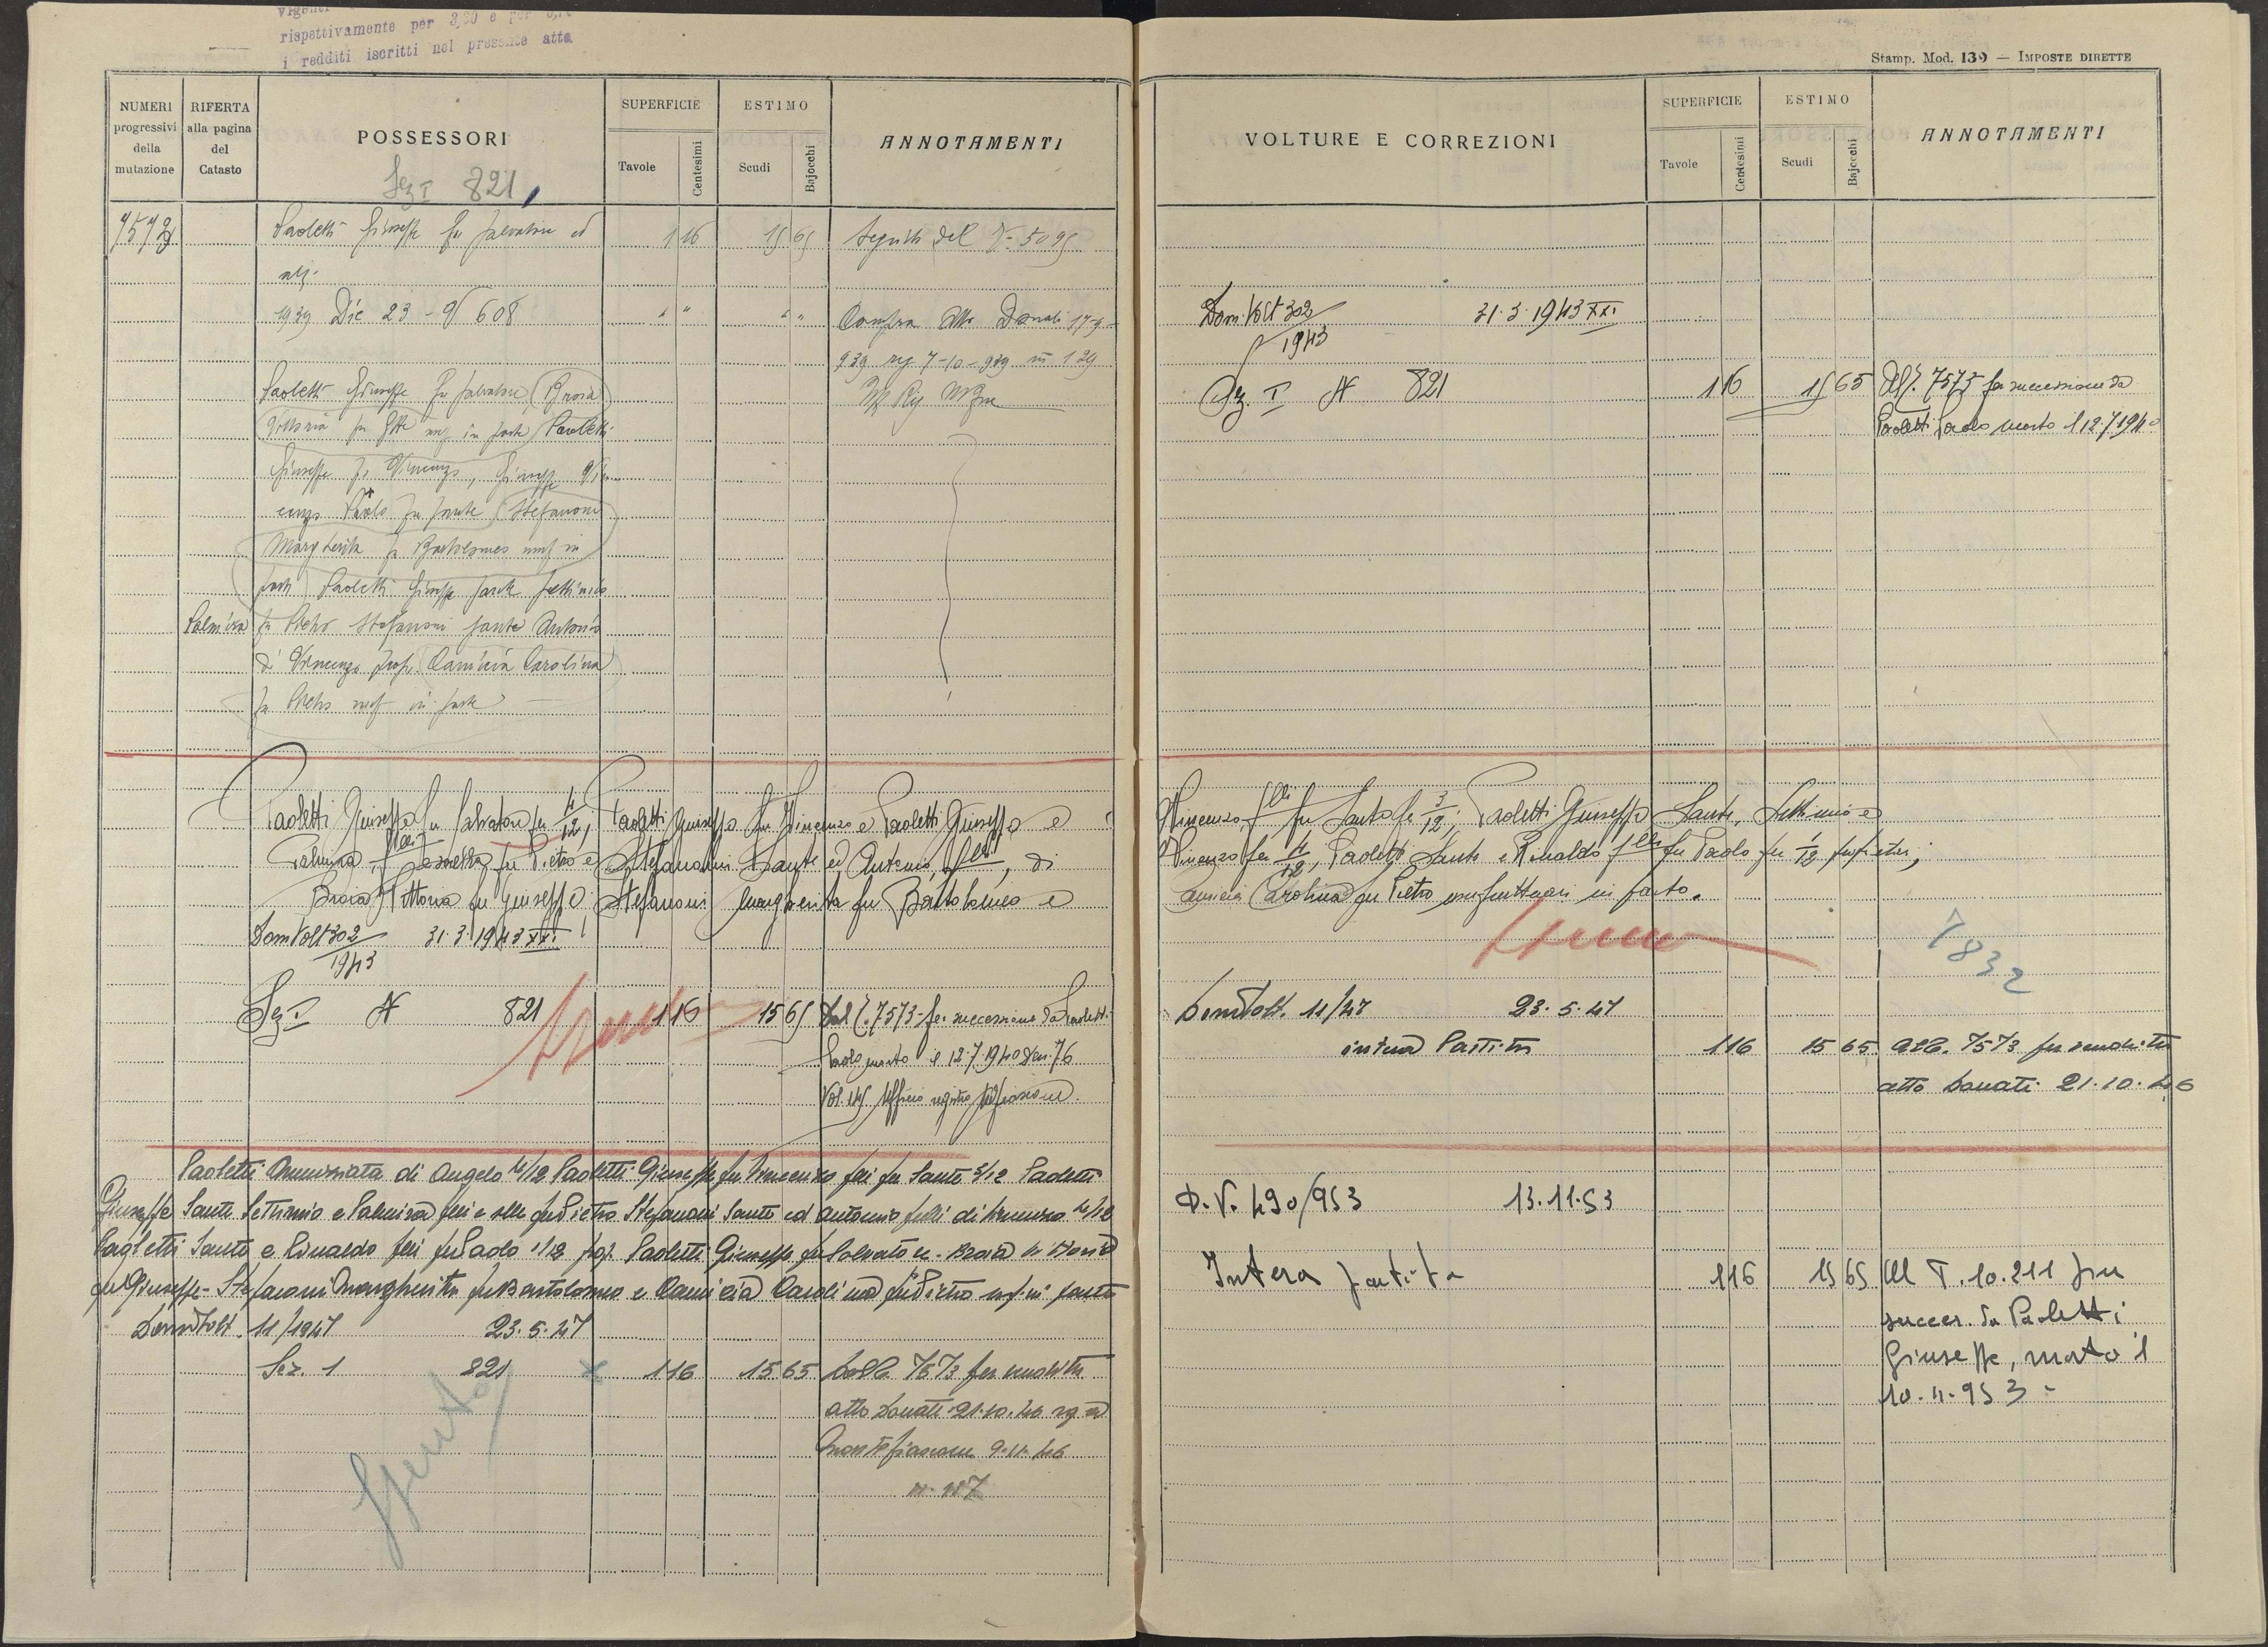 rispettivamente per 3,20 e per
i redditi iscritti nel presente atto
NUMERI progressivi della mutazione
RIFERTA alla pagina del Catasto
POSSESSORI
Sez I 821
SUPERFICIE
Tavole
Centesimi
ESTIMO
Scudi
Bajocchi
ANNOTAMENTI
7573
Paoletti Giuseppe fu Salvatore ed
1 16
15 65
Seguito del
1939 Dic 23 - V 608
" "
" "
Compra Atto Donati 17-9-
939 reg 7-10-939 n 129
Paoletti Giuseppe fu Salvatore (Broia
Vittoria fu Gppe usuf in parte) Paoletti
Giuseppe fu Vincenzo, Giuseppe Vin
cenzo Paolo fu Sante (Stefanoni
Margherita fu Bartolomeo usuf in
parte) Paoletti Giuseppe Sante Settimio
Palmira fu Pietro Stefanoni Sante Antonio
di Vincenzo prop. (Camicia Carolina
fu Pietro usuf in parte)
Paoletti Giuseppe fu Salvatore per 4/12, Paoletti Giuseppe fu Vincenzo e Paoletti Giuseppe e
Palmira, flli e sorella fu Pietro e Stefanoni Sante ed Antonio, flli, di
Broia Vittoria fu Giuseppe, Stefanoni Margherita fu Bartolomeo e
Dom Volt 302/1943 31.3.1943 XXI
Sez I N 821
1 16
15 65
Dal P. 7573 per successione da Paoletti
Paolo morto il 12.7.1940 Den. 76
Vol. Ufficio registro Mfiascone
Paoletti Annunziata di Angelo 4/12 Paoletti Giuseppe fu Vincenzo flli fu Sante 3/12 Paoletti
Giuseppe Sante Settimio e Palmira flli e slle fu Pietro Stefanoni Sante ed Antonio flli di Vincenzo 4/12
Paoletti Sante e Rinaldo flli fu Paolo 1/12 pop. Paoletti Giuseppe fu Salvatore - Broia Vittoria
fu Giuseppe - Stefanoni Margherita fu Bartolomeo e Camicia Carolina fu Pietro usf. in parte
Dom Volt. 11/1947 23.5.47
Sez. 1 821
1 16
15 65
Dalla 7573 per vendita
atto Donati 21.10.46 rg a
Montefiascone 9.11.46
n. 187
Spento
Stamp. Mod. 139 — IMPOSTE DIRETTE
VOLTURE E CORREZIONI
SUPERFICIE
Tavole
Centesimi
ESTIMO
Scudi
Bajocchi
ANNOTAMENTI
Dom. Volt 302/1943 31.3.1943 XXI
Sez. I N 821
1 16
15 65
Alla P. 7573 per successione da
Paoletti Paolo morto il 12.7.1940
Vincenzo, flli fu Sante per 3/12; Paoletti Giuseppe Sante, Settimio e
Vincenzo per 4/12, Paoletti Sante e Rinaldo flli fu Paolo per 1/12 proprietari;
Camicia Carolina fu Pietro usufruttuari in parte.
7832
Dom Volt. 11/47 23.5.47
intera Partita
1 16
15 65
alla 7573 per vendita
atto Donati 21.10.46
D.V. 490/953 13.11.53
Intera partita
1 16
15 65
All P. 10.211 per
succes. da Paoletti
Giuseppe, morto il
10.4.953 -